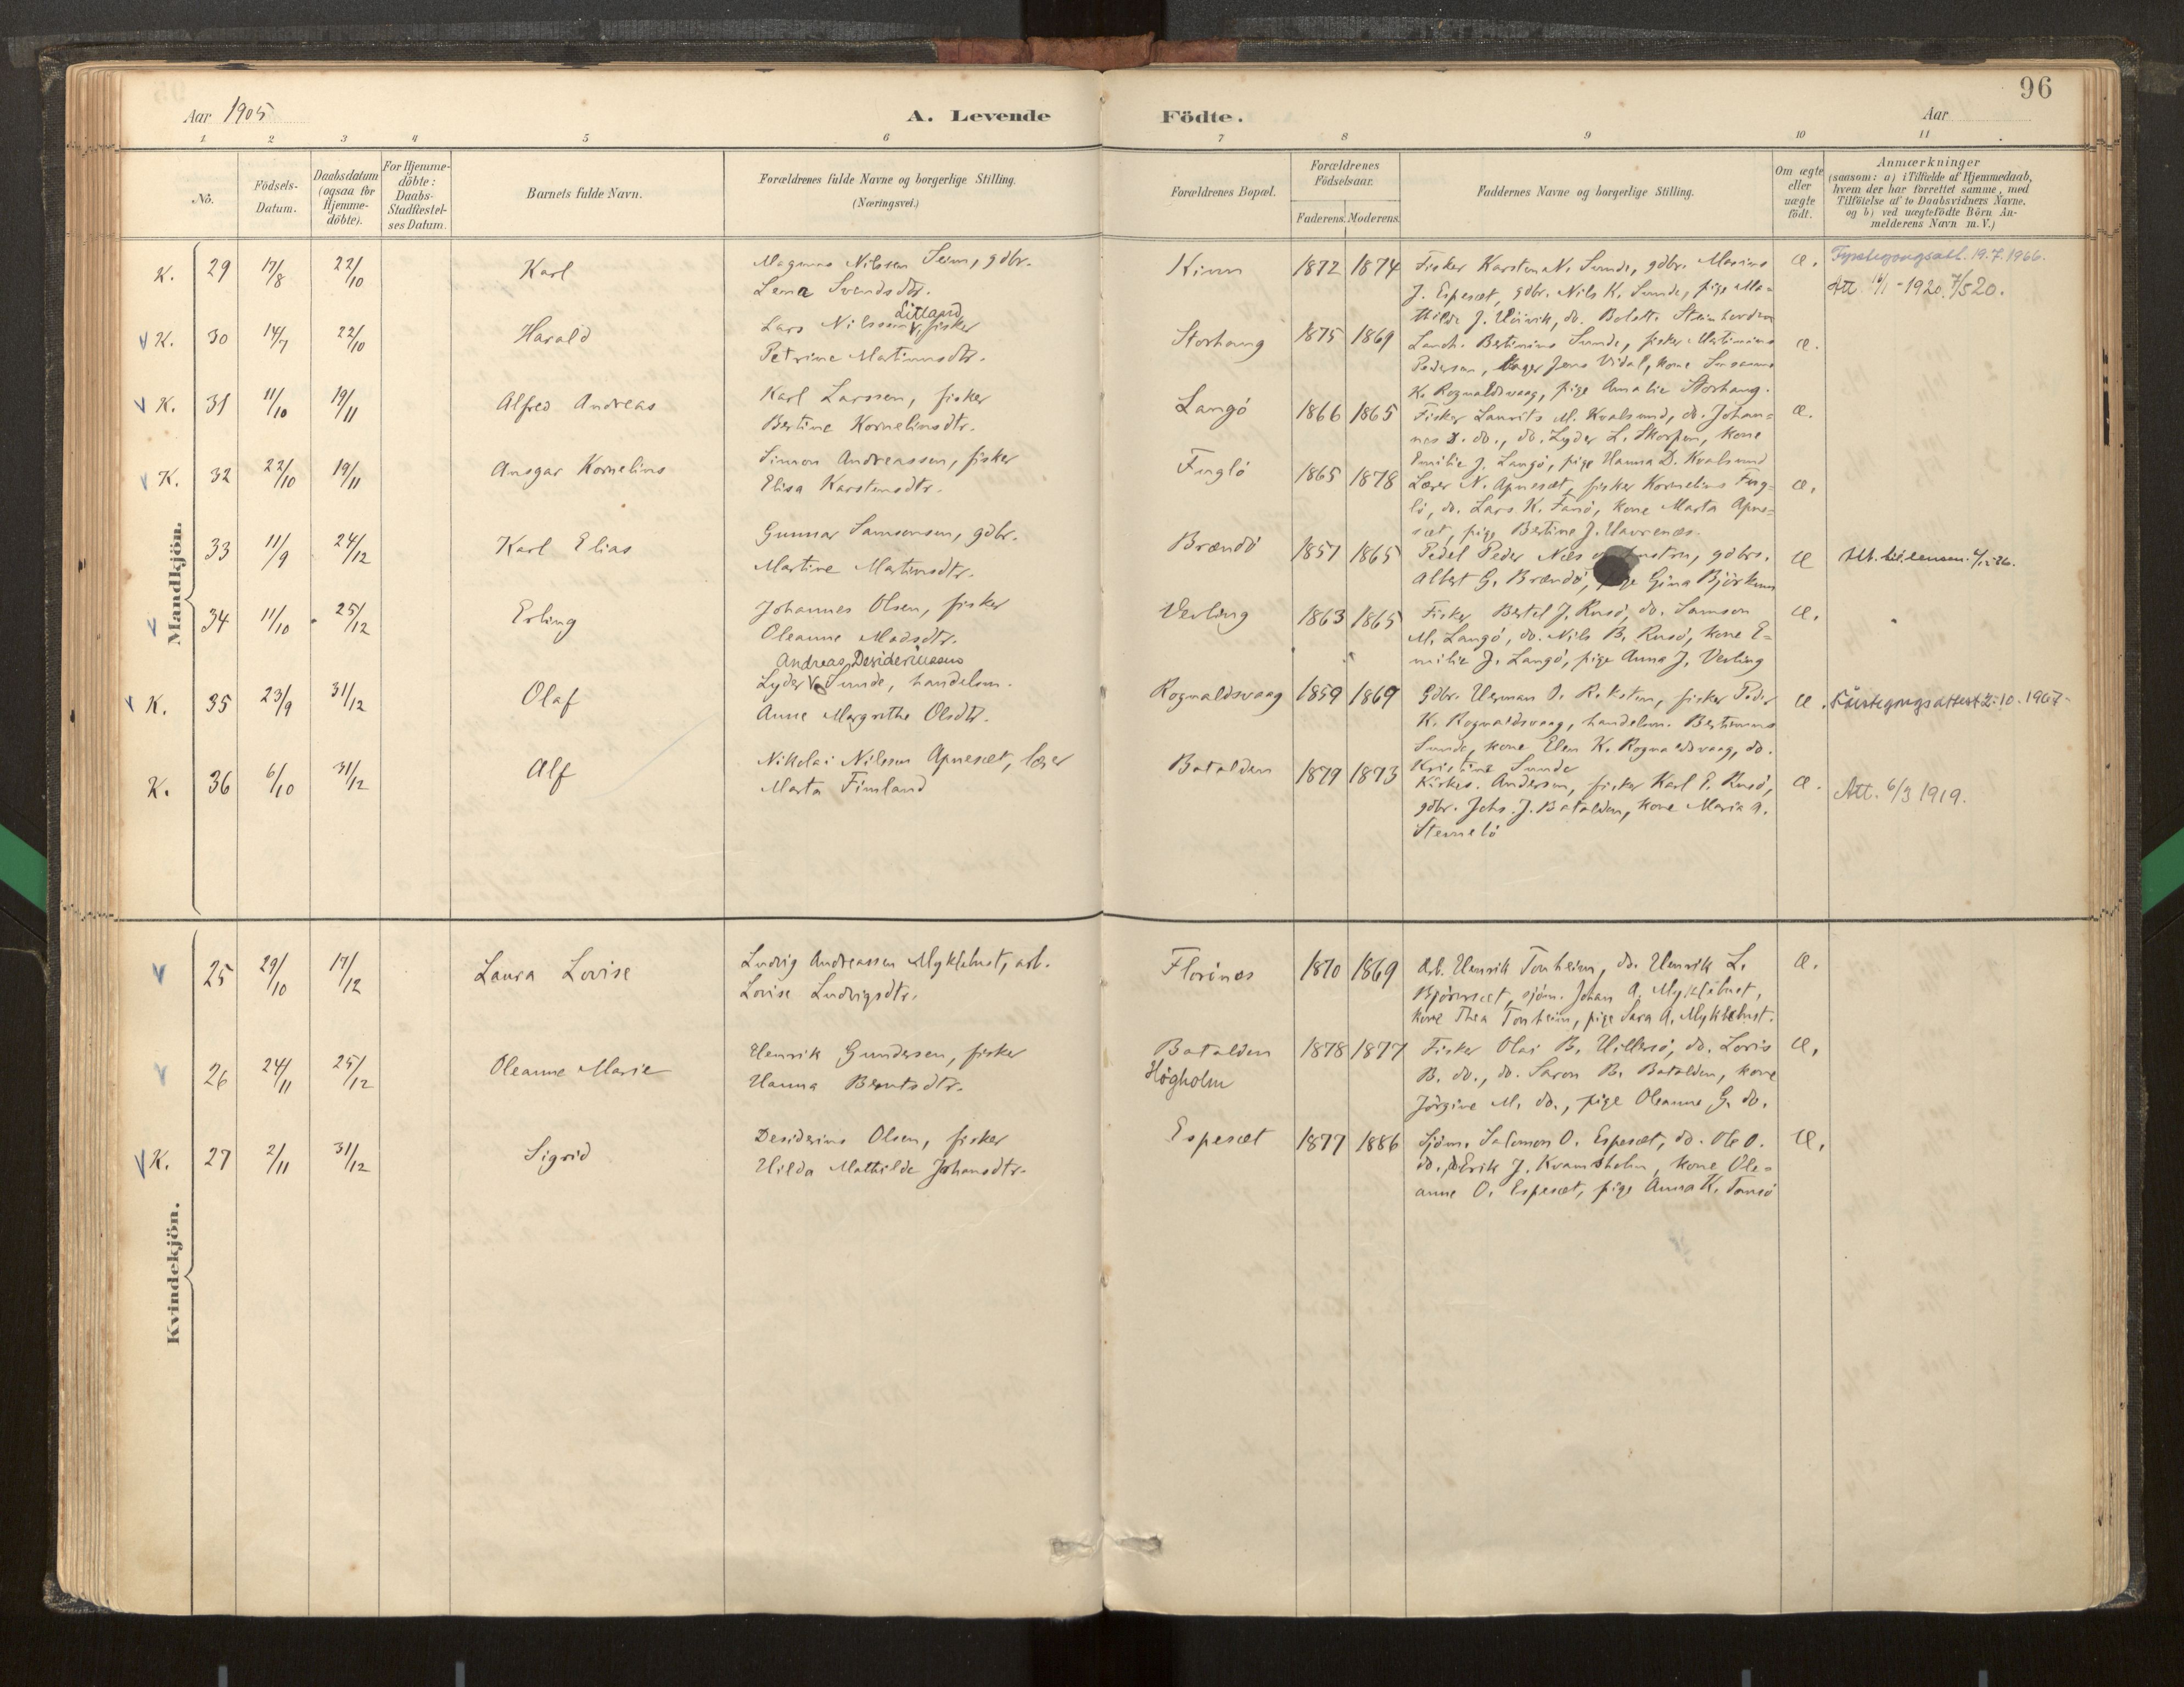 96
Aar 1905
A. Levende Födte.
Aar
1 2 3 4 5 6 7 8 9 10 11
No.
Födsels-Datum.
Daabsdatum (ogsaa for Hjemme-döbte).
For Hjemme-döbte: Daabs-Stadfæstel-ses Datum.
Barnets fulde Navn.
Forældrenes fulde Navne og borgerlige Stilling. (Næringsvei.)
Forældrenes Bopæl.
Forældrenes Födselsaar.
Faderens. Moderens.
Faddernes Navne og borgerlige Stilling.
Om ægte eller uægte födt.
Anmærkninger
(saasom: a) i Tilfælde af Hjemmedaab, hvem der har forrettet samme, med Tilföielse af to Daabsvidners Navne. og b) ved uægtefödte Börn An-melderens Navn m. V.)
Mandkjön.
K. 29 17/8 22/10 Karl
Magnus Nilssen Seim, gdbr.
Lena Svendsdtr.
Kinn 1872 1874
Fisker Karsten N. Sunde, gdbr. Marius
J. Espeset, gdbr. Nils K. Sunde, pige Ma-
thilde J. Höivik, do. Bolette Steinhovden
æ.
Fyrstegongsatt. 19.7.1966.
Att 16/1 - 1920. 7/5 20.
V K. 30 14/7 22/10 Harald
Litland
Lars Nilssen V, fisker
Petrine Martinusdtr.
Storhaug 1875 1869
Landh. Bertinius Sunde, fisker Martinius
Pedersen, Jens Vidal, kone Susanne
K. Rognaldsvaag, pige Amalie Storhaug.
æ.
V K. 31 11/10 19/11 Alfred Andreas
Karl Larssen, fisker
Bertine Kornelinsdtr.
Langö 1866 1865
Fisker Laurits M. Kvalsund, do. Johan-
nes do., do. Lyder L. Skorpen, kone
Emilie J. Langö, pige Hanna D. Kvalsund
æ.
V K. 32 22/10 19/11 Ansgar Kornelius
Simon Andreassen, fisker
Elisa Karstensdtr.
Fuglö 1865 1878
Lærer N. Apneset, fisker Kornelius Fug-
lö, do. Lars K. Fanö, kone Marta Apne-
set, pige Bertine J. Havrenæs.
æ.
33 11/9 24/12 Karl Elias
Gunnar Samsonsen, gdbr.
Martine Martinsdtr.
Brandö 1857 1865
Pedel Peder Næs, gdbr.
Albert G. Brandö, pige Gina Björkum
æ
V 34 11/10 25/12 Erling
Johannes Olsen, fisker
Oleanne Madsdtr.
Verling 1863 1865
Fisker Bertel J. Rusö, do. Samson
M. Langö, do. Nils B. Rusö, kone E-
milie J. Langö, pige Anna J. Verling
æ.
V K. 35 23/9 31/12 Olaf
Andreas Desideriussøn
Lyder V Sunde, handelsm.
Anne Margrethe Olsdtr.
Rognaldsvaag 1859 1869
Gdbr. Herman O. Reksten, fisker Peder
K. Rognaldsvaag, handelsm. Bertinius
Sunde, kone Elen K. Rognaldsvaag, do.
Kristine Sunde
æ. Förstegongsattest 2-10-1967-
K. 36 6/10 31/12 Alf
Nikolai Nilssen Apneset, lærer
Marta Fimland
Batalden 1879 1873
Kirkes. Andersen, fisker Karl E. Rusö,
gdbr. Johs. J. Batalden, kone Maria A.
Stennelö
æ. Att. 6/3 1919.
Kvindekjön.
V 25 29/10 17/12 Laura Lovise
Ludvig Andreassen Myklebust, arb.
Lovise Ludvigsdtr.
Florönes 1870 1869
Arb. Henrik Tonheim, do. Henrik L.
Björneset, sjöm. Johan A. Myklebust,
kone Thea Tonheim, pige Sara A. Myklebust.
æ.
V 26 24/11 25/12 Oleanne Marie
Henrik Gundersen, fisker
Hanna Berntsdtr.
Batalden
Högholm
1878 1877
Fisker Olai B. Hillersö, do. Loris
B. do., do. Saron B. Batalden, kone
Jörgine M. do., pige Oleanne G. do.
æ.
V K. 27 2/11 31/12 Sigrid
Desiderius Olsen, fisker
Hilda Mathilde Johansdtr.
Espeset 1877 1886
Sjöm. Salomon O. Espeset, do. Ole O.
do., do Erik J. Kvamsholm, kone Ole-
anne O. Espeset, pige Anna K. Tansö
æ.